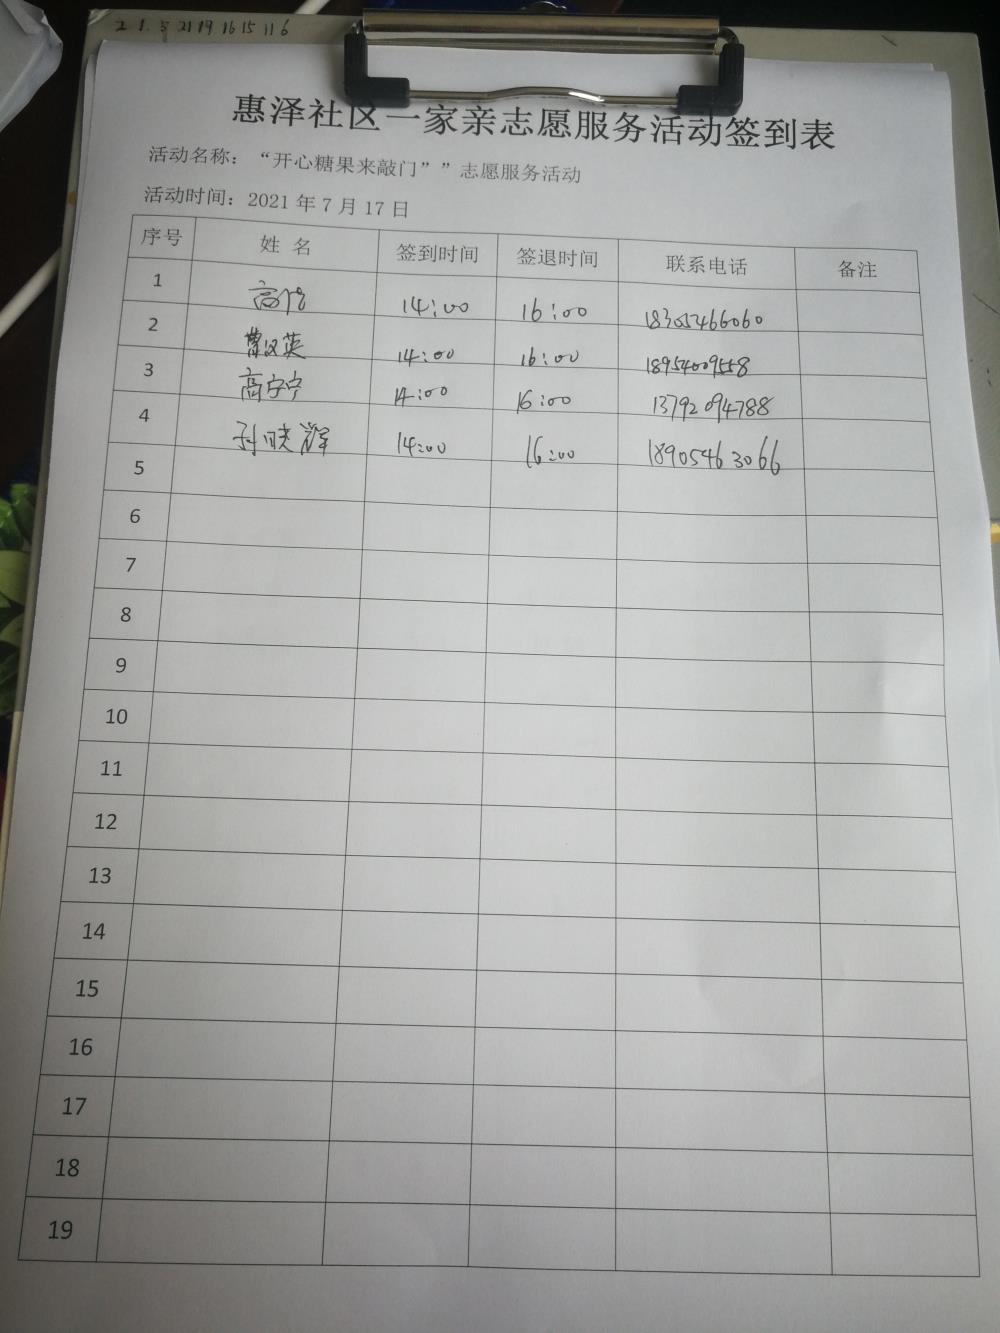 2 1. 5 21 19 16 15 11 6
惠泽社区一家亲志愿服务活动签到表
活动名称：“开心糖果来敲门””志愿服务活动
活动时间：2021 年 7 月 17 日
序号 姓 名 签到时间 签退时间 联系电话 备注
1 14:00 16:00 18305466060
2 曹汉英 14:00 16:00 18954009558
3 高宁宁 14:00 16:00 13792094788
4 孙晓辉 14:00 16:00 18905463066
5
6
7
8
9
10
11
12
13
14
15
16
17
18
19